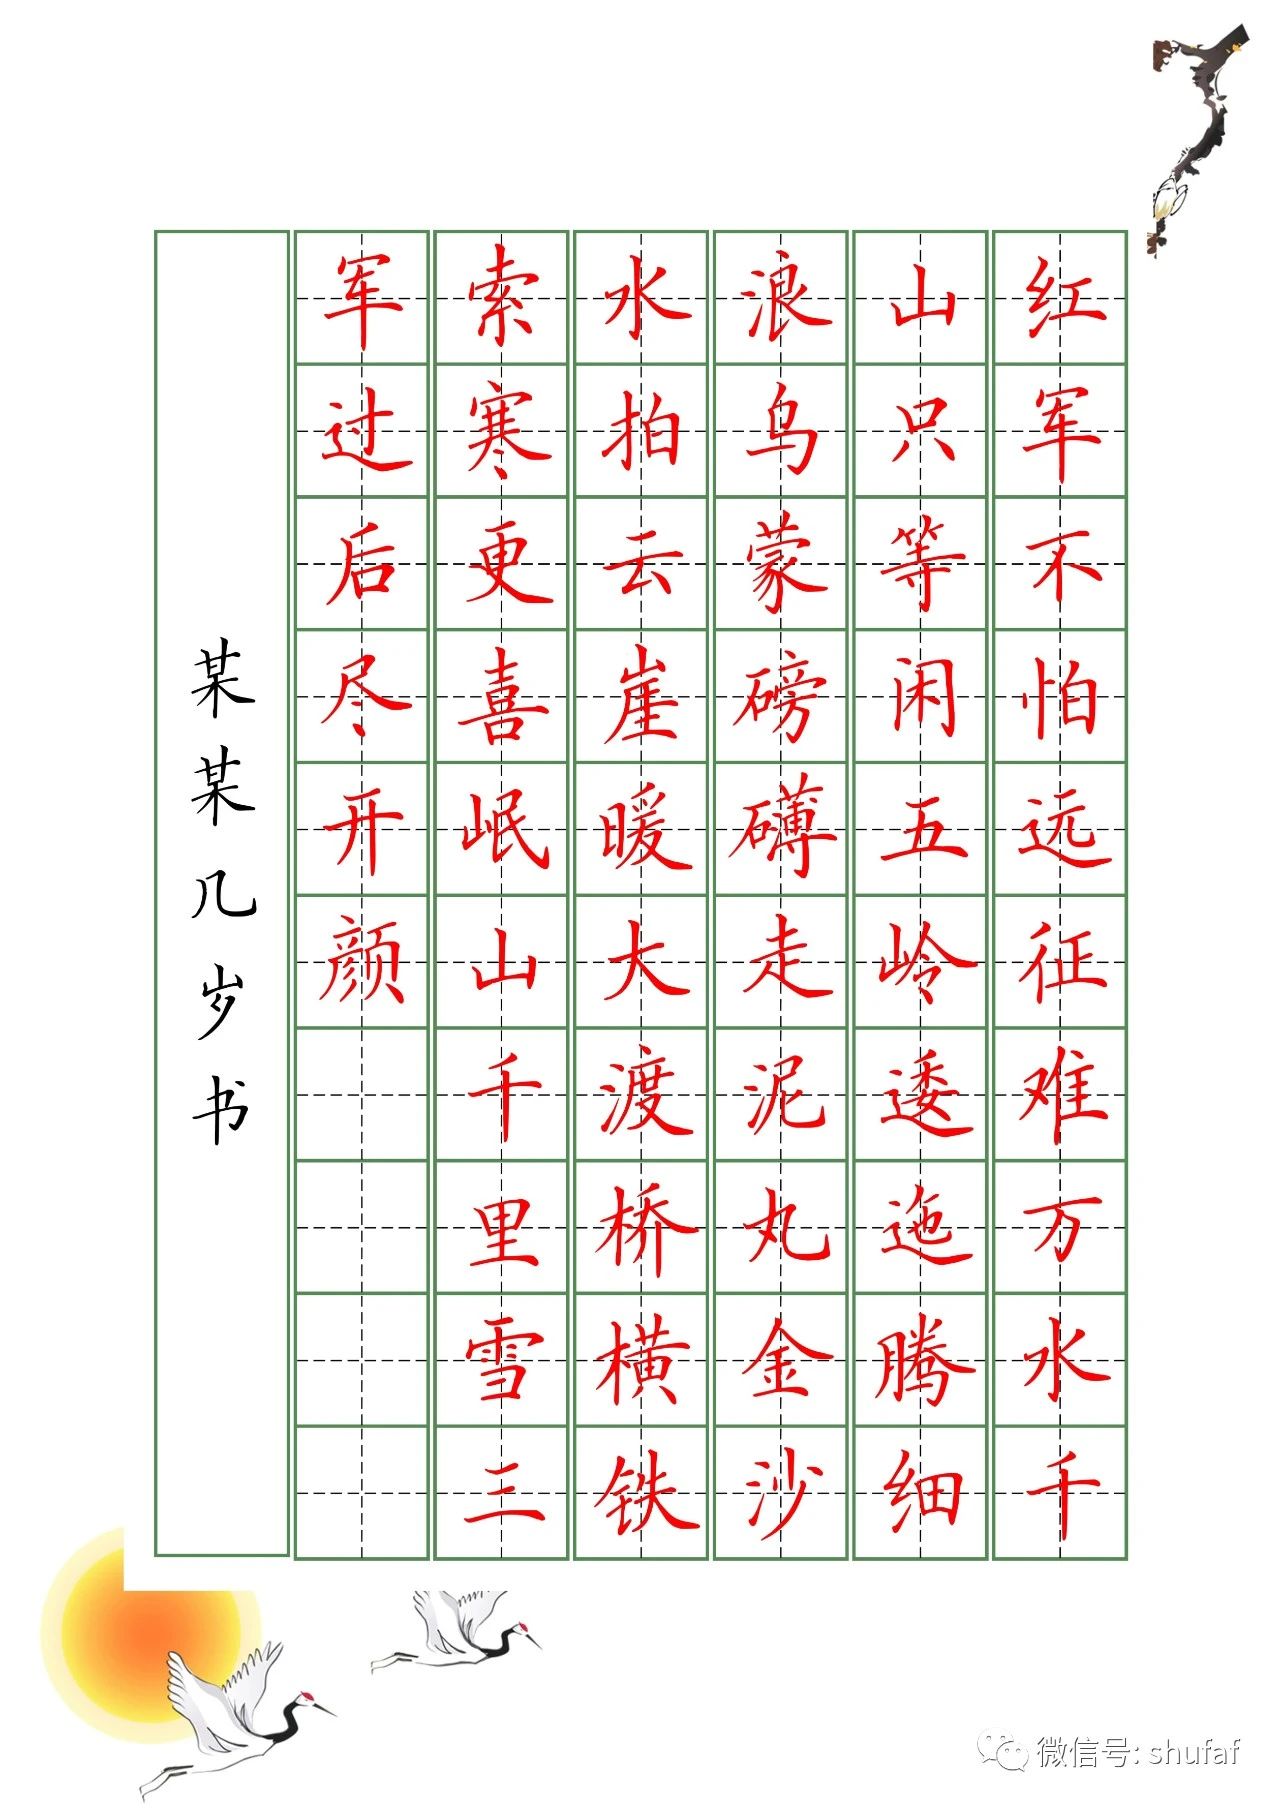 红军不怕远征难万水千
山只等闲五岭逶迤腾细
浪乌蒙磅礴走泥丸金沙
水拍云崖暖大渡桥横铁
索寒更喜岷山千里雪三
军过后尽开颜
某某几岁书
微信号: shufaf